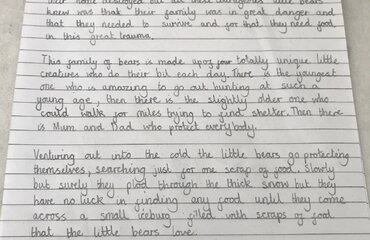 their home destroyed but all these courageous little bears
knew was that their family was in great danger and
that they needed to survive and for that they need food
in this great trauma.
This family of bears is made up of four totally unique little
creatures who do their bit each day. There is the youngest
one who is amazing to go out hunting at such a
young age, then there is the slightly older one who
could walk for miles trying to find shelter. Then there
is Mum and Dad who protect everybody.
Venturing out into the cold the little bears go protecting
themselves, searching just for one scrap of food. Slowly
but surely they plod through the thick snow but they
have no luck in finding any food until they come
across a small iceburg filled with scraps of food
that the little bears love.